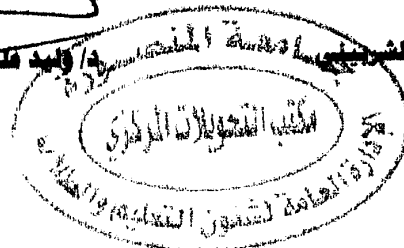 الشربيني
د/ وليد
جامعة المنصورة
مكتب التحويلات المركزي
الإدارة العامة لشئون التعليم والطلاب